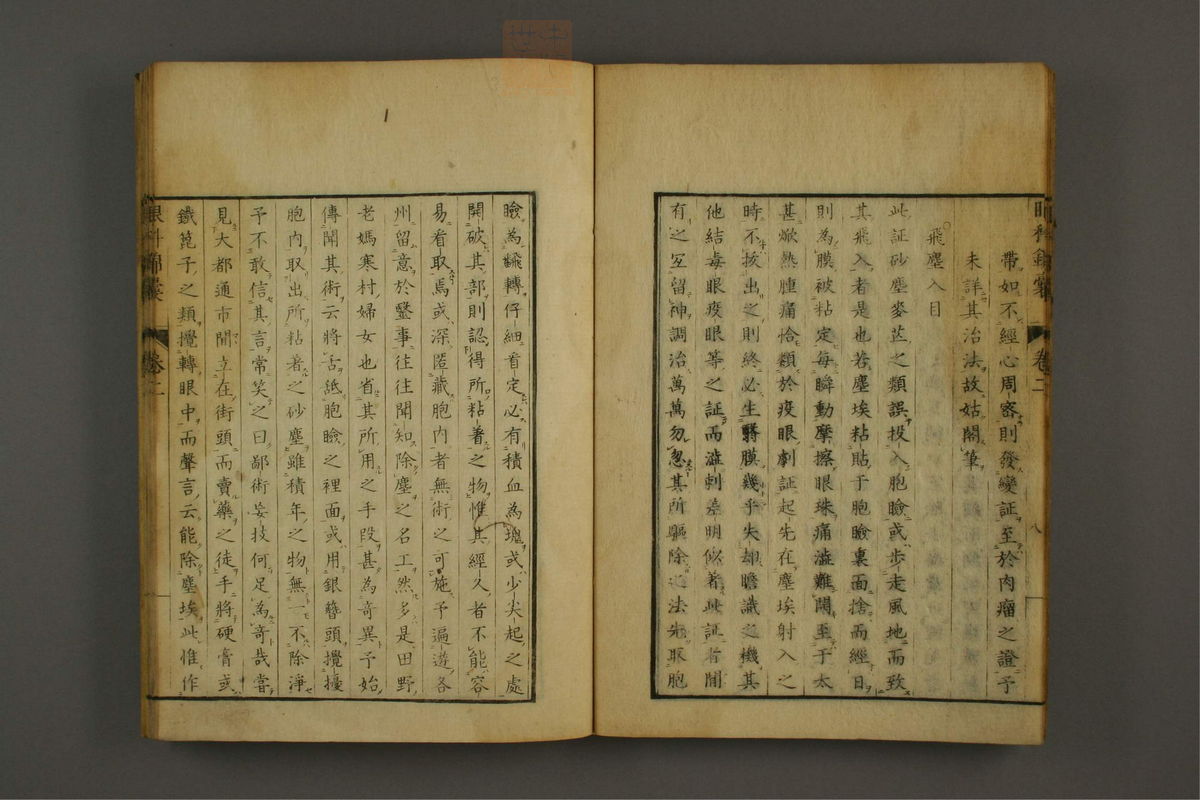 眼科錦囊 卷二 八
帶如不經心周密則發變証至於肉瘤之證予
未詳其治法故姑閣筆
飛塵入目
此証砂塵麥芒之類誤投入胞瞼或步走風地而致
其飛入者是也若塵埃粘貼于胞瞼裏面捨而經日
則為膜被粘定每瞬動摩擦眼珠痛澁難開至于太
甚焮熱腫痛恰類於疫眼劇証起先在塵埃射入之
時不拔出之則終必生翳膜幾乎失却瞻識之機其
他結毒眼疫眼等之証而澁刺羞明似著此証者間
有之宜留神調治萬萬勿忽其所驅除之法先取胞
瞼為飜轉仔細看定必有積血為塊或少尖起之處
開破其部則認得所粘着之物惟其經久者不能容
易看取焉或深匿藏胞內者無術之可施予遍遊各
州留意於毉事往往聞知除塵之名工然多是田野
老媽寒村婦女也省其所用之手段甚為奇異予始
傳聞其術云將舌舐胞瞼之裡面或用銀簪頭攪擾
胞內取出所粘着之砂塵雖積年之物無一不除淨
予不敢信其言常笑之曰鄙術妄技何足為奇哉嘗
見大都通市間立在街頭而賣藥之徒手將硬膏或
鐵篦子之類攪轉眼中而聲言云能除塵埃此惟作
眼科錦囊 卷二